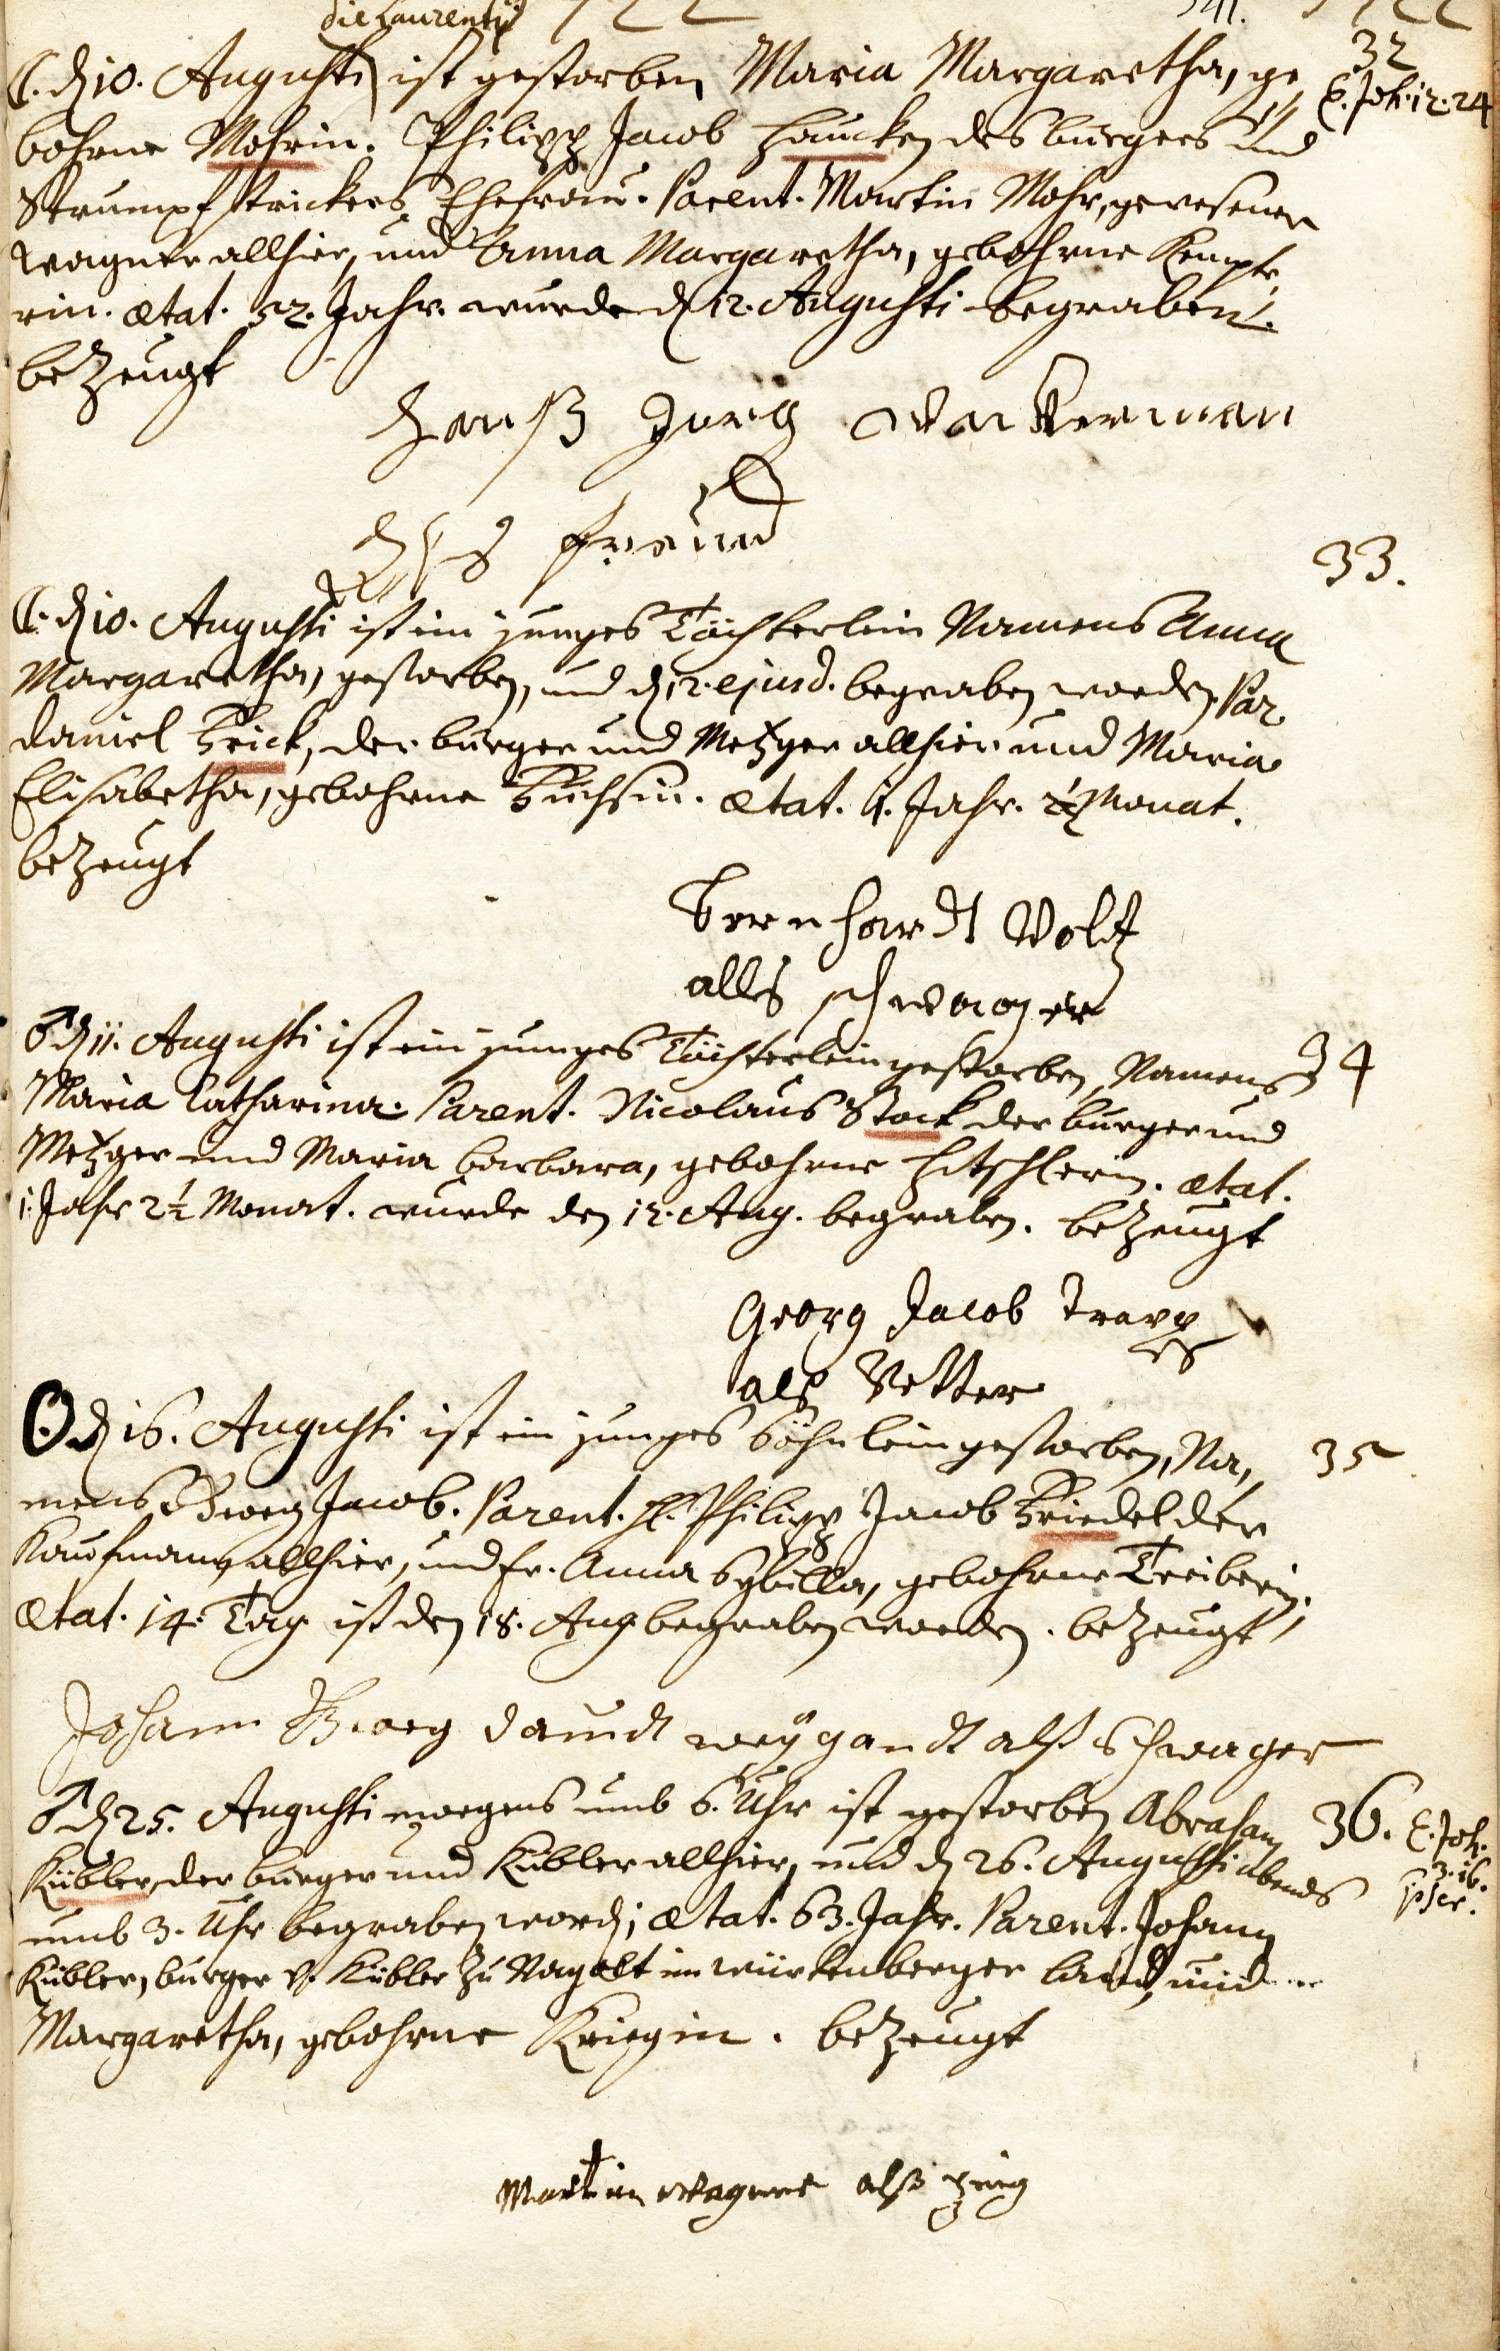 die Laurentij 1722 341. 1722
☾. d 10. Augusti ist gestorben Maria Margaretha, ge- 32
E. Joh. 12. 24
bohrne Mohrin. Philipp Jacob Haucken des burgers und
Strumpfstrickers Ehefrau. Parent. Martin Mohr, gewesener
wagner allhier, und Anna Margaretha, gebohrne Kempte-
rin. ætat. 32. Jahr. wurde d 12. Augusti begraben.
bezeugt
Hanß Jurg Wackerman
als freund
33.
☾. d 10. Augusti ist ein junges Töchterlein Namens Anna
Margaretha, gestorben, und d 12. ejusd. begraben worden. Par.
Daniel Frick, der burger und Metzger allhier und Maria
Elisabetha, gebohrne Fuchsin. ætat. 1. Jahr. Monat.
bezeugt
Bernhardt Voltz
alls schwager
♂ d 11. Augusti ist ein junges Töchterlein gestorben, Namens 34
Maria Catharina. Parent. Nicolaus Stock der burger und
Metzger und Maria Barbara, gebohrne Hitschlerin. ætat.
1. Jahr 2½ Monat. wurde den 12. Aug. begraben. bezeugt
Georg Jacob Trapp
alß Vetter
☉ d 16. Augusti ist ein junges Söhnlein gestorben, Na- 35
mens Georg Jacob. Parent. H. Philipp Jacob Friedel der
Kaufmann allhier, und fr. Anna Sybilla, gebohrne Treiberin.
ætat. 14. Tag ist den 18. Aug begraben worden. bezeugt
Johann Georg daundt weÿgandt alß schwager
♂ d 25. Augusti morgens umb 6. Uhr ist gestorben Abraham 36. E. Joh.
3. 16.
Kübler, der burger und Kübler allhier, und d 26. Augusti abends
umb 3. Uhr begraben word; ætat. 63. Jahr. Parent. Johann
Kübler, burger v. Kübler zu Nagolt im würtenberger Land, und
Margaretha, gebohrne Kriegin. bezeugt
Martin wagner alß zeug